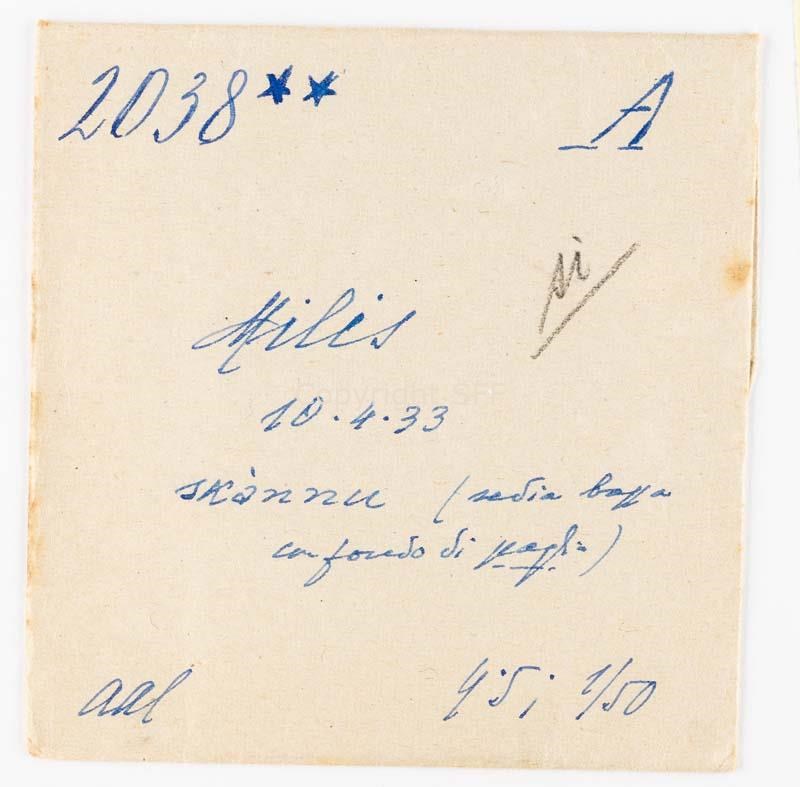 2038** A
si
Milis
10.4.33
skànnu (sedia bassa
con fondo di paglia)
aal 4'5; 1/50
Copyright SFF